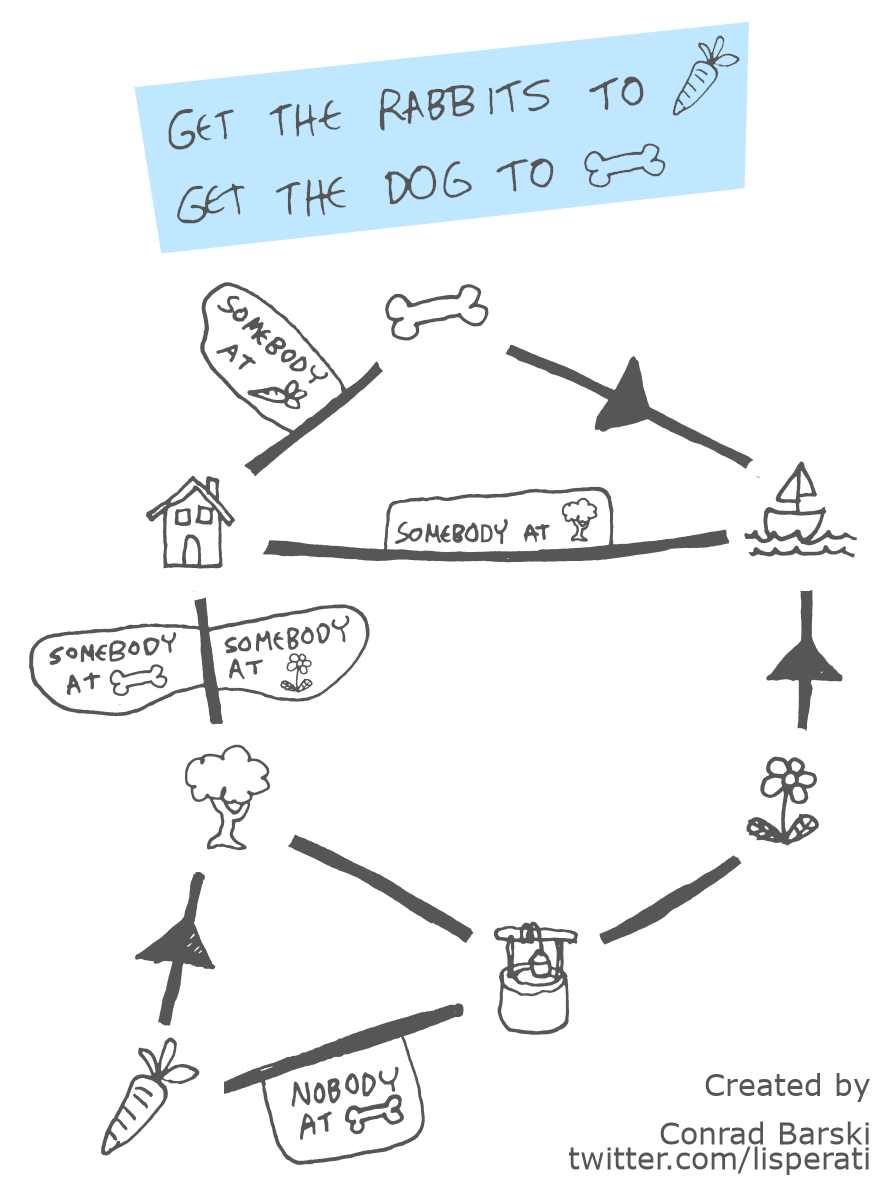 GET THE RABBITS TO
GET THE DOG TO
SOMEBODY
AT
SOMEBODY AT
SOMEBODY
AT
SOMEBODY
AT
NOBODY
AT
Created by
Conrad Barski
twitter.com/lisperati